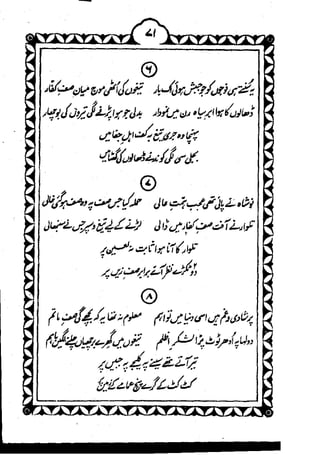 ۷۱
۶
یہ کہتے ہی فوجوں کو جو جنبش ہوئی اک بار تیغوں کی اُٹھی موج میان صف کفار
ڈھالوں کا ہوا ابر سیاہ رن میں نمودار بدلی جو ہوا پڑنے لگی تیروں کی بوچھار
پہنچا وہ جری تیغ بکف اہل جفا میں
بجلی سی لگی کوندنے ڈھالوں کی گھٹا میں
۷
نوشاہ نے پائی تھی عجب ہمت عالی حملہ کیا جس صف پہ وہ صف ہوگئی خالی
تلوار نے آفت صف کفار میں ڈالی لڑنے کے لیے تیغ و سپر جس نے سنبھالی
تلوار کا آنا ہوا ثابت نہ لعیں پر
دو ٹکڑے نظر آئے برابر سے زمیں پر
۸
پر شادی و غم ہیں اسی دنیا میں تو باہم معلوم نہ تھا یہ کہ بچھے گی صف ماتم
دولہا پہ اُدھر ٹوٹ پڑا لشکر اظلم تیغوں میں گھرے برچھیاں چلنے لگیں باہم
تیر آتے تھے سینے پہ کلیجے پہ جبیں پر
کٹ کٹ کے گرے پیچ عمامے کے زمیں پر